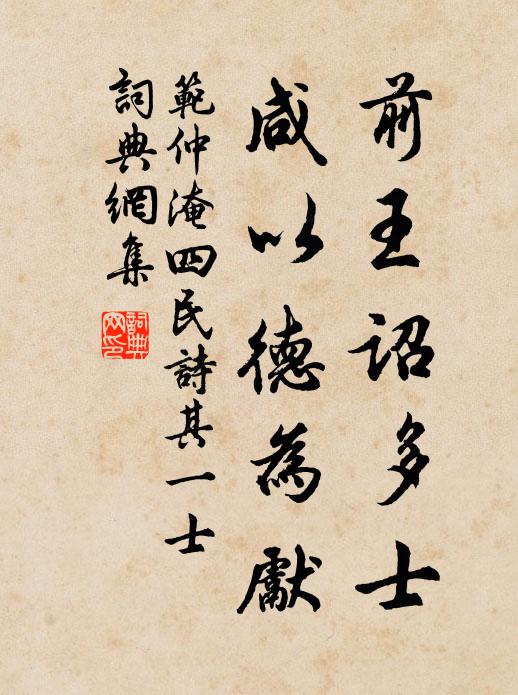 前王詔多士
咸以德為獻
範仲淹四民詩其一士
詞典網集
詞典網印